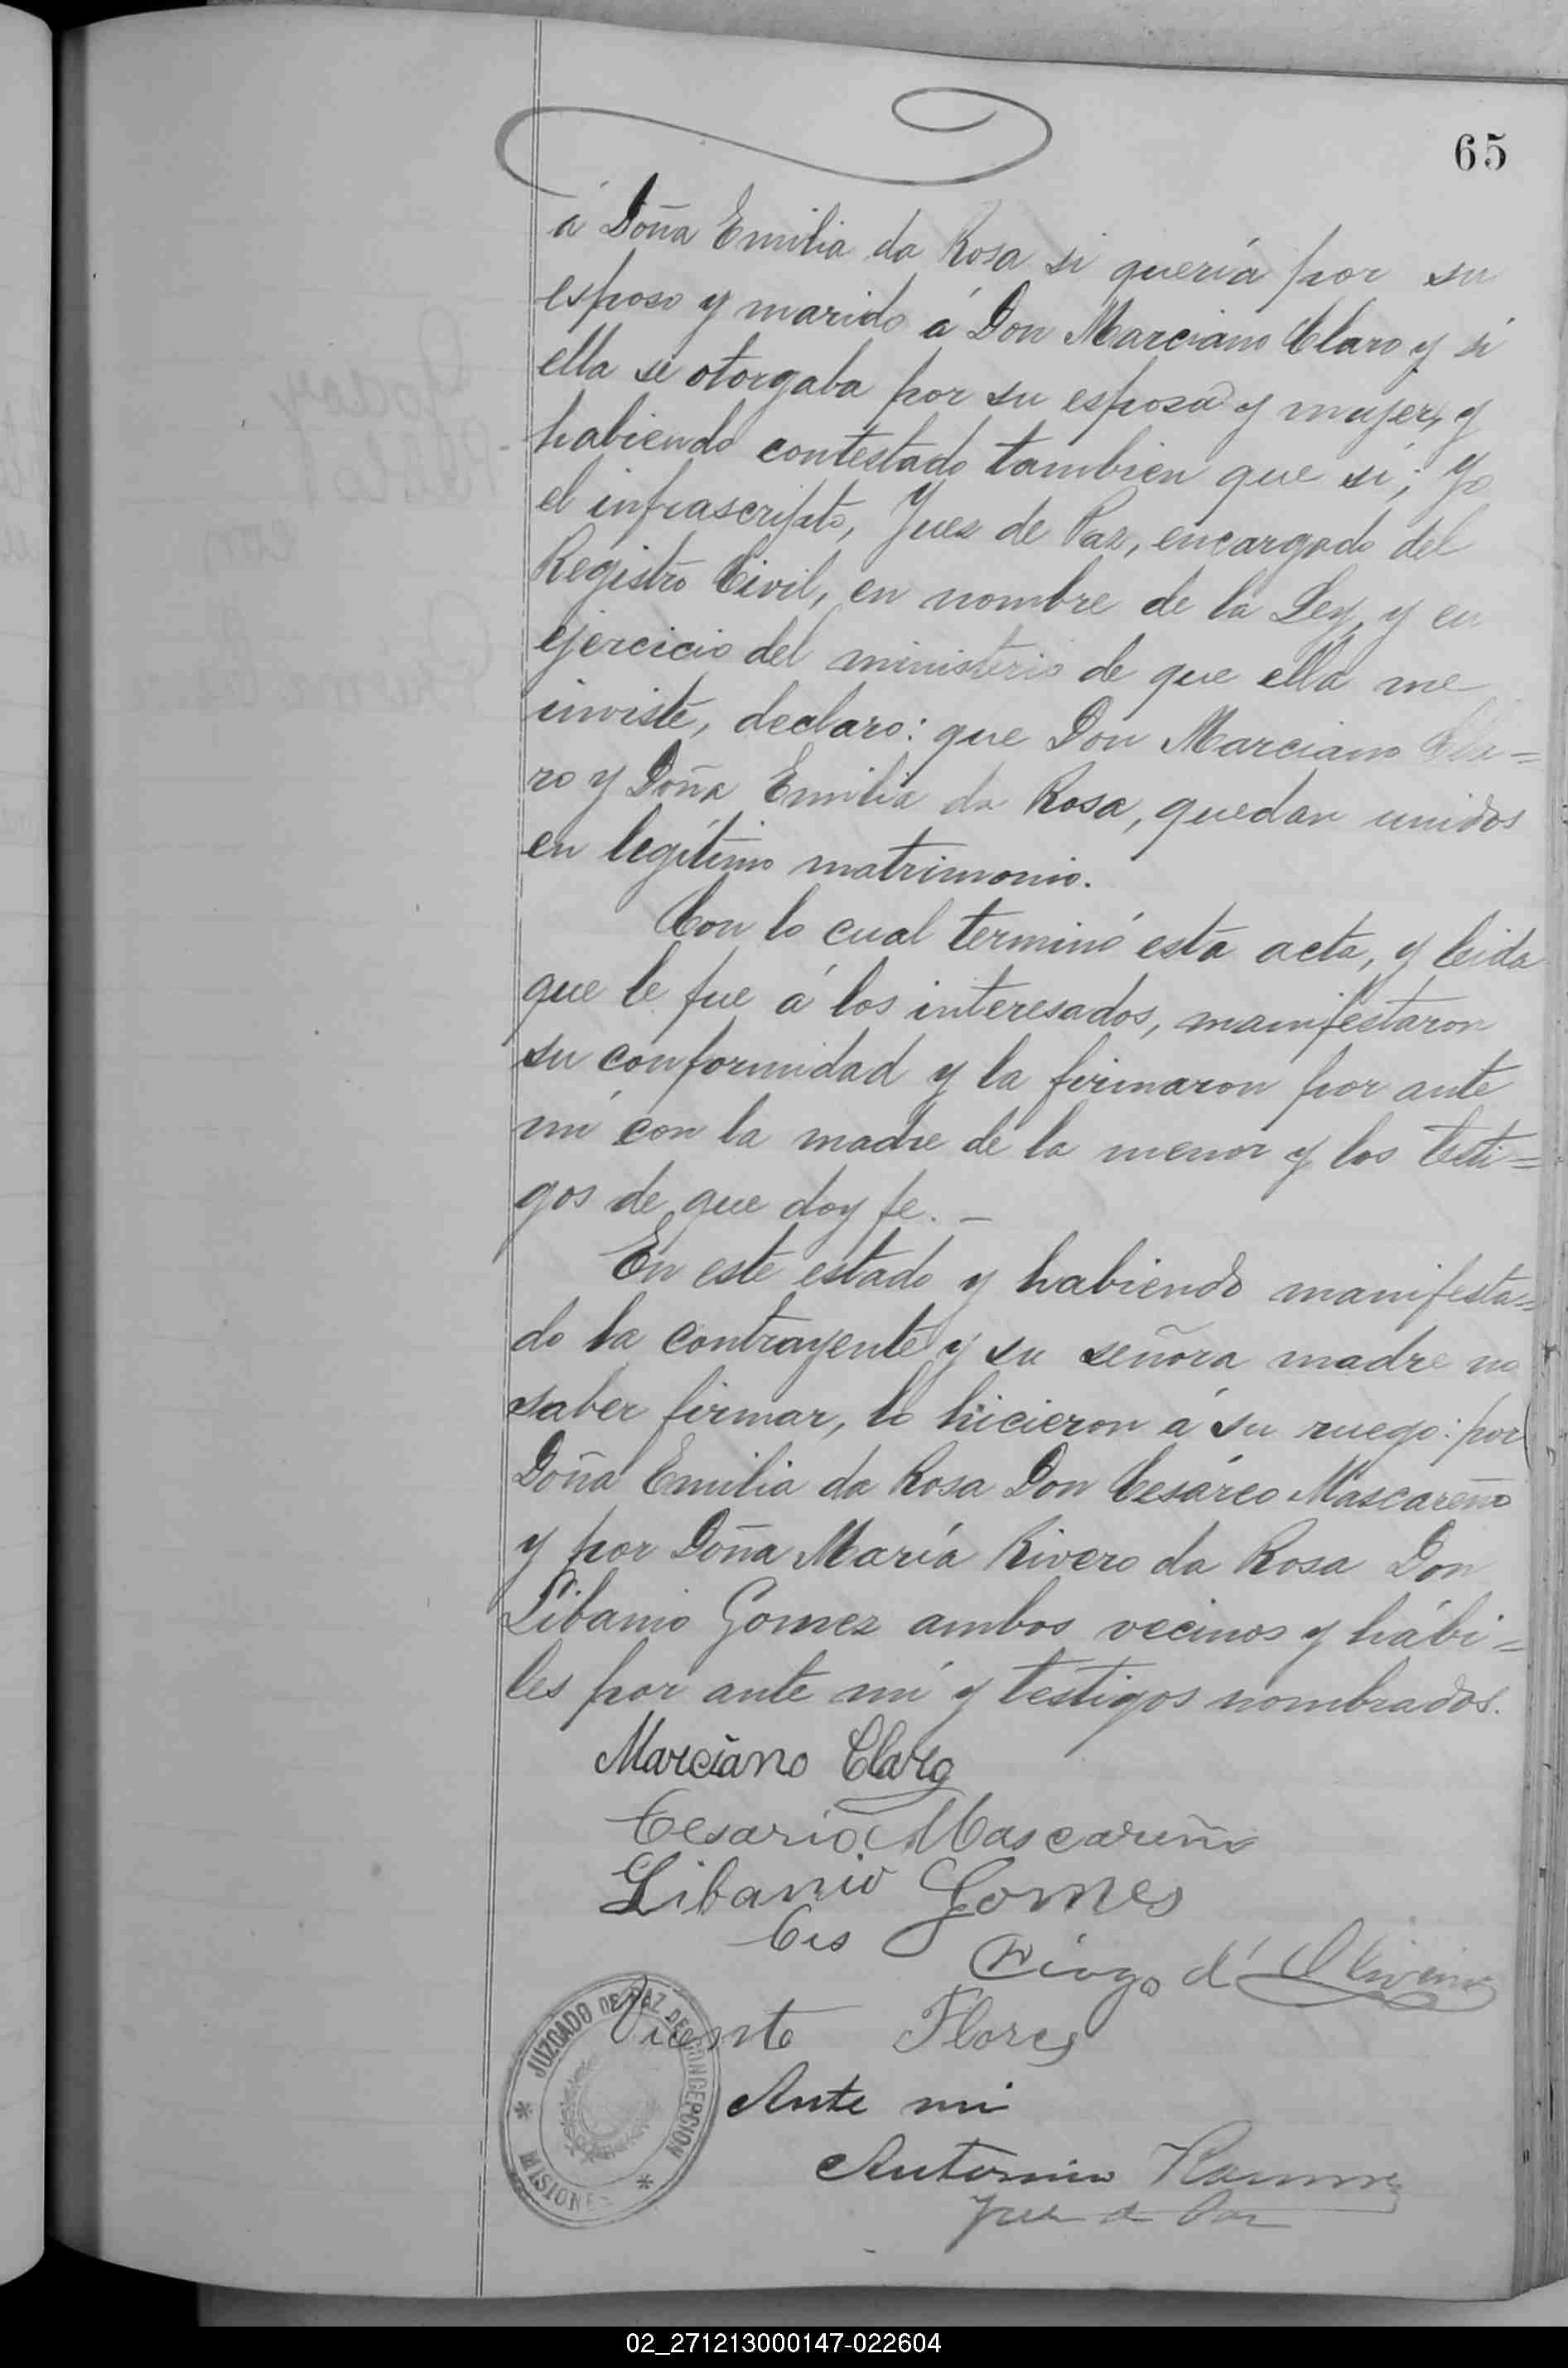 65
á Doña Emilia da Rosa si quería por su
esposo y marido á Don Marciano Claro y si
ella se otorgaba por su esposa y mujer, y
habiendo contestado tambien que sí; Yo
el infrascripto, Juez de Paz, encargado del
Registro Civil, en nombre de la Ley, y en
ejercicio del ministerio de que ella me
inviste, declaro: que Don Marciano Cla=
ro y Doña Emilia da Rosa, quedan unidos
en legítimo matrimonio.
Con lo cual terminó esta acta, y leida
que le fue á los interesados, manifestaron
su conformidad y la firmaron por ante
mí con la madre de la menor y los testi=
gos de que doy fe. —
En este estado y habiendo manifesta=
do la contrayente y su señora madre no
saber firmar, lo hicieron á su ruego: por
Doña Emilia da Rosa Don Cesáreo Mascareño
y por Doña María Rivero da Rosa Don
Libanio Gomez ambos vecinos y hábi=
les por ante mí y testigos nombrados.
Marciano Claro
Cesario Mascareño
Libanio Gomes
d'Oliveira
Vicente Flores
JUZGADO DE PAZ DE CONCEPCION
* MISIONES *
Ante mi
Antonino
Juez de Paz
02_271213000147-022604